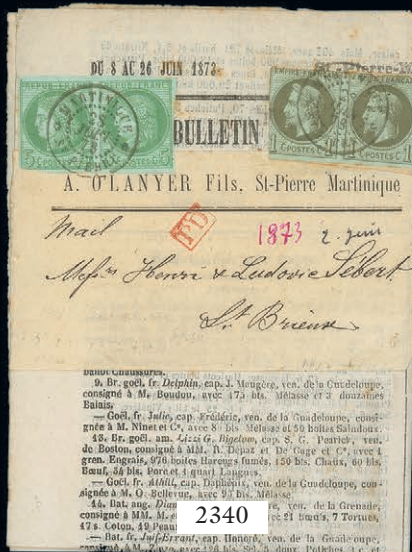 DU 8 AU 26 JUIN 1873
St-Pierre-M
EMPIRE FRANC
EMPIRE FRANÇ
MARTINIQUE
ST PIERRE
5 C POSTES C 5
1 C POSTES C 1
BULLETIN
A. O'LANYER Fils, St-Pierre Martinique
PD
Mail
1873 2. juin
Messrs Henri & Ludovic Sébert
St Brieux
ballot Chaussures.
9. Br. goël. fr. Delphin, cap. J. Maugère, ven. de la Guadeloupe,
consigné à M. Boudou, avec 175 bls. Mélasse et 3 douzaines
Balais.
— Goël. fr. Julie, cap. Frédéric, ven. de la Guadeloupe, consi-
gnée à M. Ninet et Ce, avec 8 bls Mélasse et 50 boîtes Saindoux.
13. Br. goël. am. Lizzi G. Bigelow, cap. S. G. Pearick, ven.
de Boston, consigné à MM. R. Depaz et De Gage et Ce, avec 1
gren. Engrais, 976 boîtes Harengs fumés, 150 bls. Chaux, 60 bls.
Bœuf, 34 bls. Porc et 1 quart Langues.
— Goël. fr. Athill, cap. Daphénix, ven. de la Guadeloupe, con-
signée à M. O. Bellevue, avec 95 bls. Mélasse.
14. Bat. ang. Dian ven. de la Grenade,
consigné à MM. M. avec 21 bœufs, 7 Tortues,
17 s. Coton, 19 Peaux
— Bat. fr. Juif-Errant, cap. Honoré, ven. de la Guade-
2340